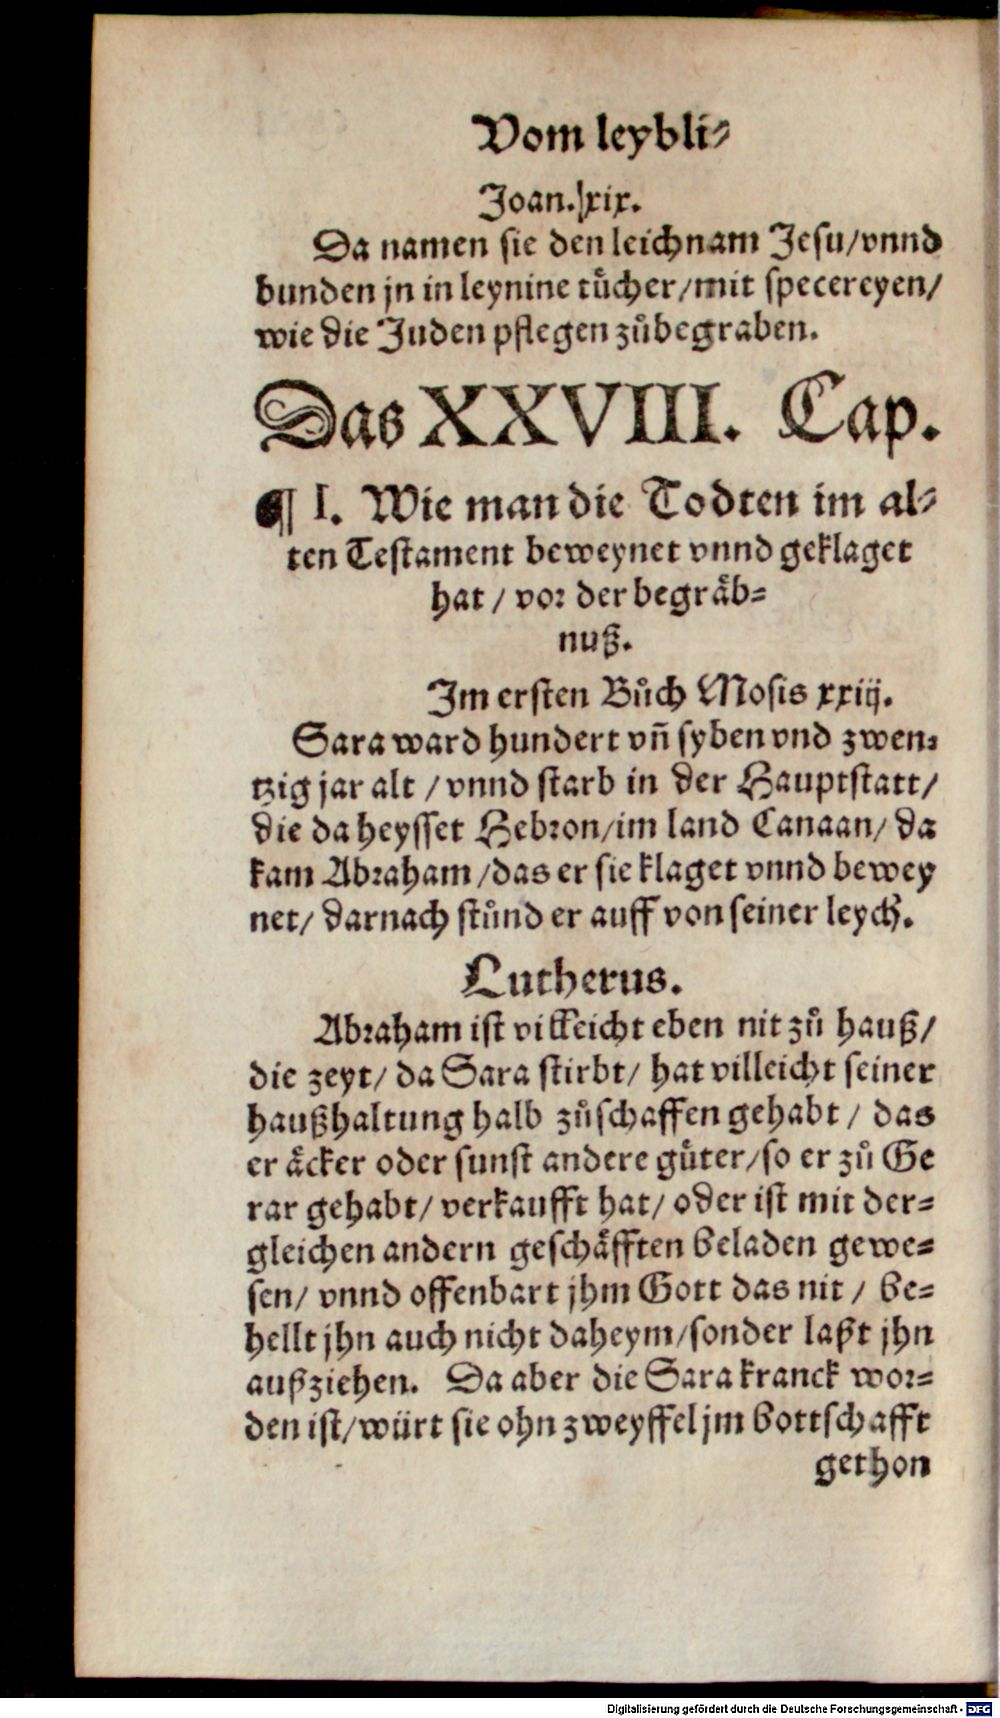 Vom leybli⸗
Joan. xix.
Da namen sie den leichnam Jesu/vnnd
bunden jn in leynine tuͤcher/mit specereyen/
wie die Juden pflegen zuͦbegraben.
Das XXVIII. Cap.
¶ I. Wie man die Todten im al⸗
ten Testament beweynet vnnd geklaget
hat / vor der begraͤb⸗
nuß.
Im ersten Buͦch Mosis xxiij.
Sara ward hundert vñ syben vnd zwen⸗
tzig jar alt / vnnd starb in der Hauptstatt/
die da heysset Hebron/im land Canaan/ da
kam Abraham /das er sie klaget vnnd bewey
net/ darnach stuͦnd er auff von seiner leych.
Lutherus.
Abraham ist villeicht eben nit zuͦ hauß/
die zeyt/ da Sara stirbt/ hat villeicht seiner
haußhaltung halb zuͦschaffen gehabt / das
er aͤcker oder sunst andere guͤter/so er zuͦ Ge
rar gehabt/ verkaufft hat/ oder ist mit der⸗
gleichen andern geschaͤfften beladen gewe⸗
sen/ vnnd offenbart jhm Gott das nit / be⸗
hellt jhn auch nicht daheym/sonder laßt jhn
außziehen. Da aber die Sara kranck wor⸗
den ist/wuͤrt sie ohn zweyffel jm bottschafft
gethon
Digitalisierung gefördert durch die Deutsche Forschungsgemeinschaft - DFG